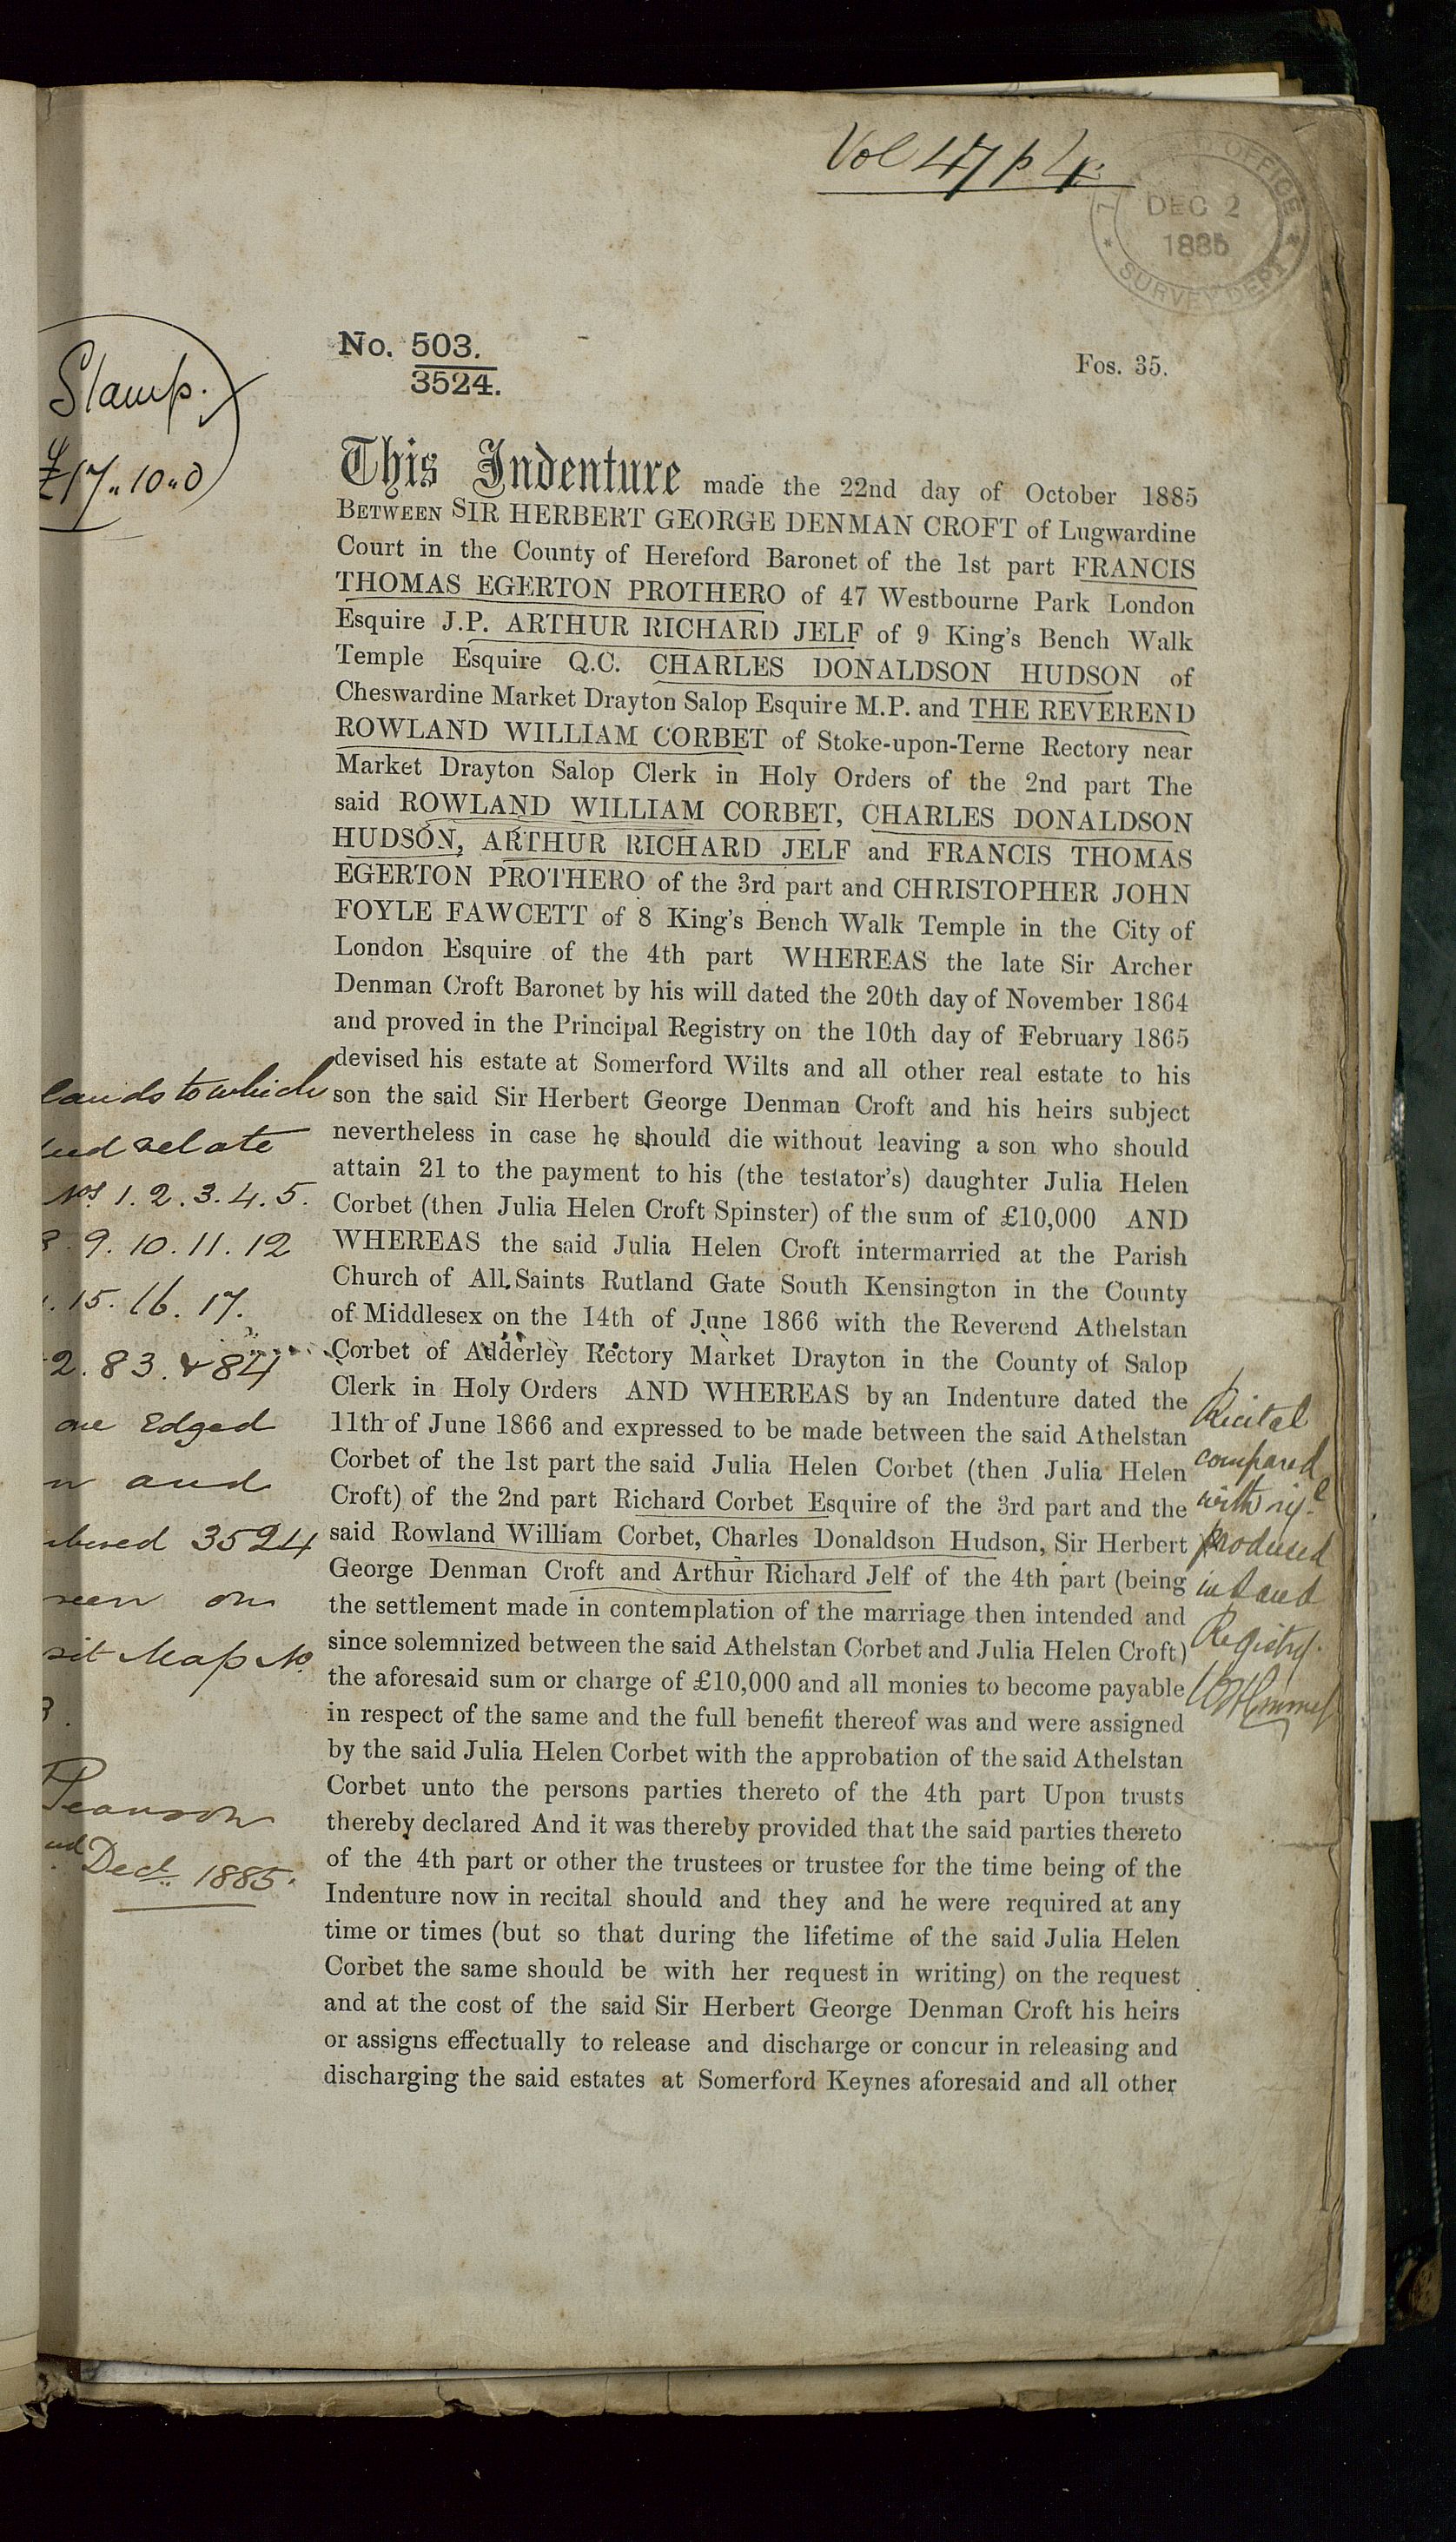 Vol 47 p 4.
OFFICE
DEC 2
1885
SURVEY DEPT
Stamp.
£17.,10.,0
No. 503.
3524.
Fos. 35.
This Indenture made the 22nd day of October 1885
BETWEEN SIR HERBERT GEORGE DENMAN CROFT of Lugwardine
Court in the County of Hereford Baronet of the 1st part FRANCIS
THOMAS EGERTON PROTHERO of 47 Westbourne Park London
Esquire J.P. ARTHUR RICHARD JELF of 9 King's Bench Walk
Temple Esquire Q.C. CHARLES DONALDSON HUDSON of
Cheswardine Market Drayton Salop Esquire M.P. and THE REVEREND
ROWLAND WILLIAM CORBET of Stoke-upon-Terne Rectory near
Market Drayton Salop Clerk in Holy Orders of the 2nd part The
said ROWLAND WILLIAM CORBET, CHARLES DONALDSON
HUDSON, ARTHUR RICHARD JELF and FRANCIS THOMAS
EGERTON PROTHERO of the 3rd part and CHRISTOPHER JOHN
FOYLE FAWCETT of 8 King's Bench Walk Temple in the City of
London Esquire of the 4th part WHEREAS the late Sir Archer
Denman Croft Baronet by his will dated the 20th day of November 1864
and proved in the Principal Registry on the 10th day of February 1865
devised his estate at Somerford Wilts and all other real estate to his
son the said Sir Herbert George Denman Croft and his heirs subject
nevertheless in case he should die without leaving a son who should
attain 21 to the payment to his (the testator's) daughter Julia Helen
Corbet (then Julia Helen Croft Spinster) of the sum of £10,000 AND
WHEREAS the said Julia Helen Croft intermarried at the Parish
Church of All Saints Rutland Gate South Kensington in the County
of Middlesex on the 14th of June 1866 with the Reverend Athelstan
Corbet of Adderley Rectory Market Drayton in the County of Salop
Clerk in Holy Orders AND WHEREAS by an Indenture dated the
11th of June 1866 and expressed to be made between the said Athelstan
Corbet of the 1st part the said Julia Helen Corbet (then Julia Helen
Croft) of the 2nd part Richard Corbet Esquire of the 3rd part and the
said Rowland William Corbet, Charles Donaldson Hudson, Sir Herbert
George Denman Croft and Arthur Richard Jelf of the 4th part (being
the settlement made in contemplation of the marriage then intended and
since solemnized between the said Athelstan Corbet and Julia Helen Croft)
the aforesaid sum or charge of £10,000 and all monies to become payable
in respect of the same and the full benefit thereof was and were assigned
by the said Julia Helen Corbet with the approbation of the said Athelstan
Corbet unto the persons parties thereto of the 4th part Upon trusts
thereby declared And it was thereby provided that the said parties thereto
of the 4th part or other the trustees or trustee for the time being of the
Indenture now in recital should and they and he were required at any
time or times (but so that during the lifetime of the said Julia Helen
Corbet the same should be with her request in writing) on the request
and at the cost of the said Sir Herbert George Denman Croft his heirs
or assigns effectually to release and discharge or concur in releasing and
discharging the said estates at Somerford Keynes aforesaid and all other
lands to which
relate
Nos. 1. 2. 3. 4. 5.
9. 10. 11. 12
15. 16. 17.
2. 83. & 84
are Edged
and
3524
on
Map No.
Pearson
Decr. 1885.
Recital
compared
with
produced
in Land
Registry.